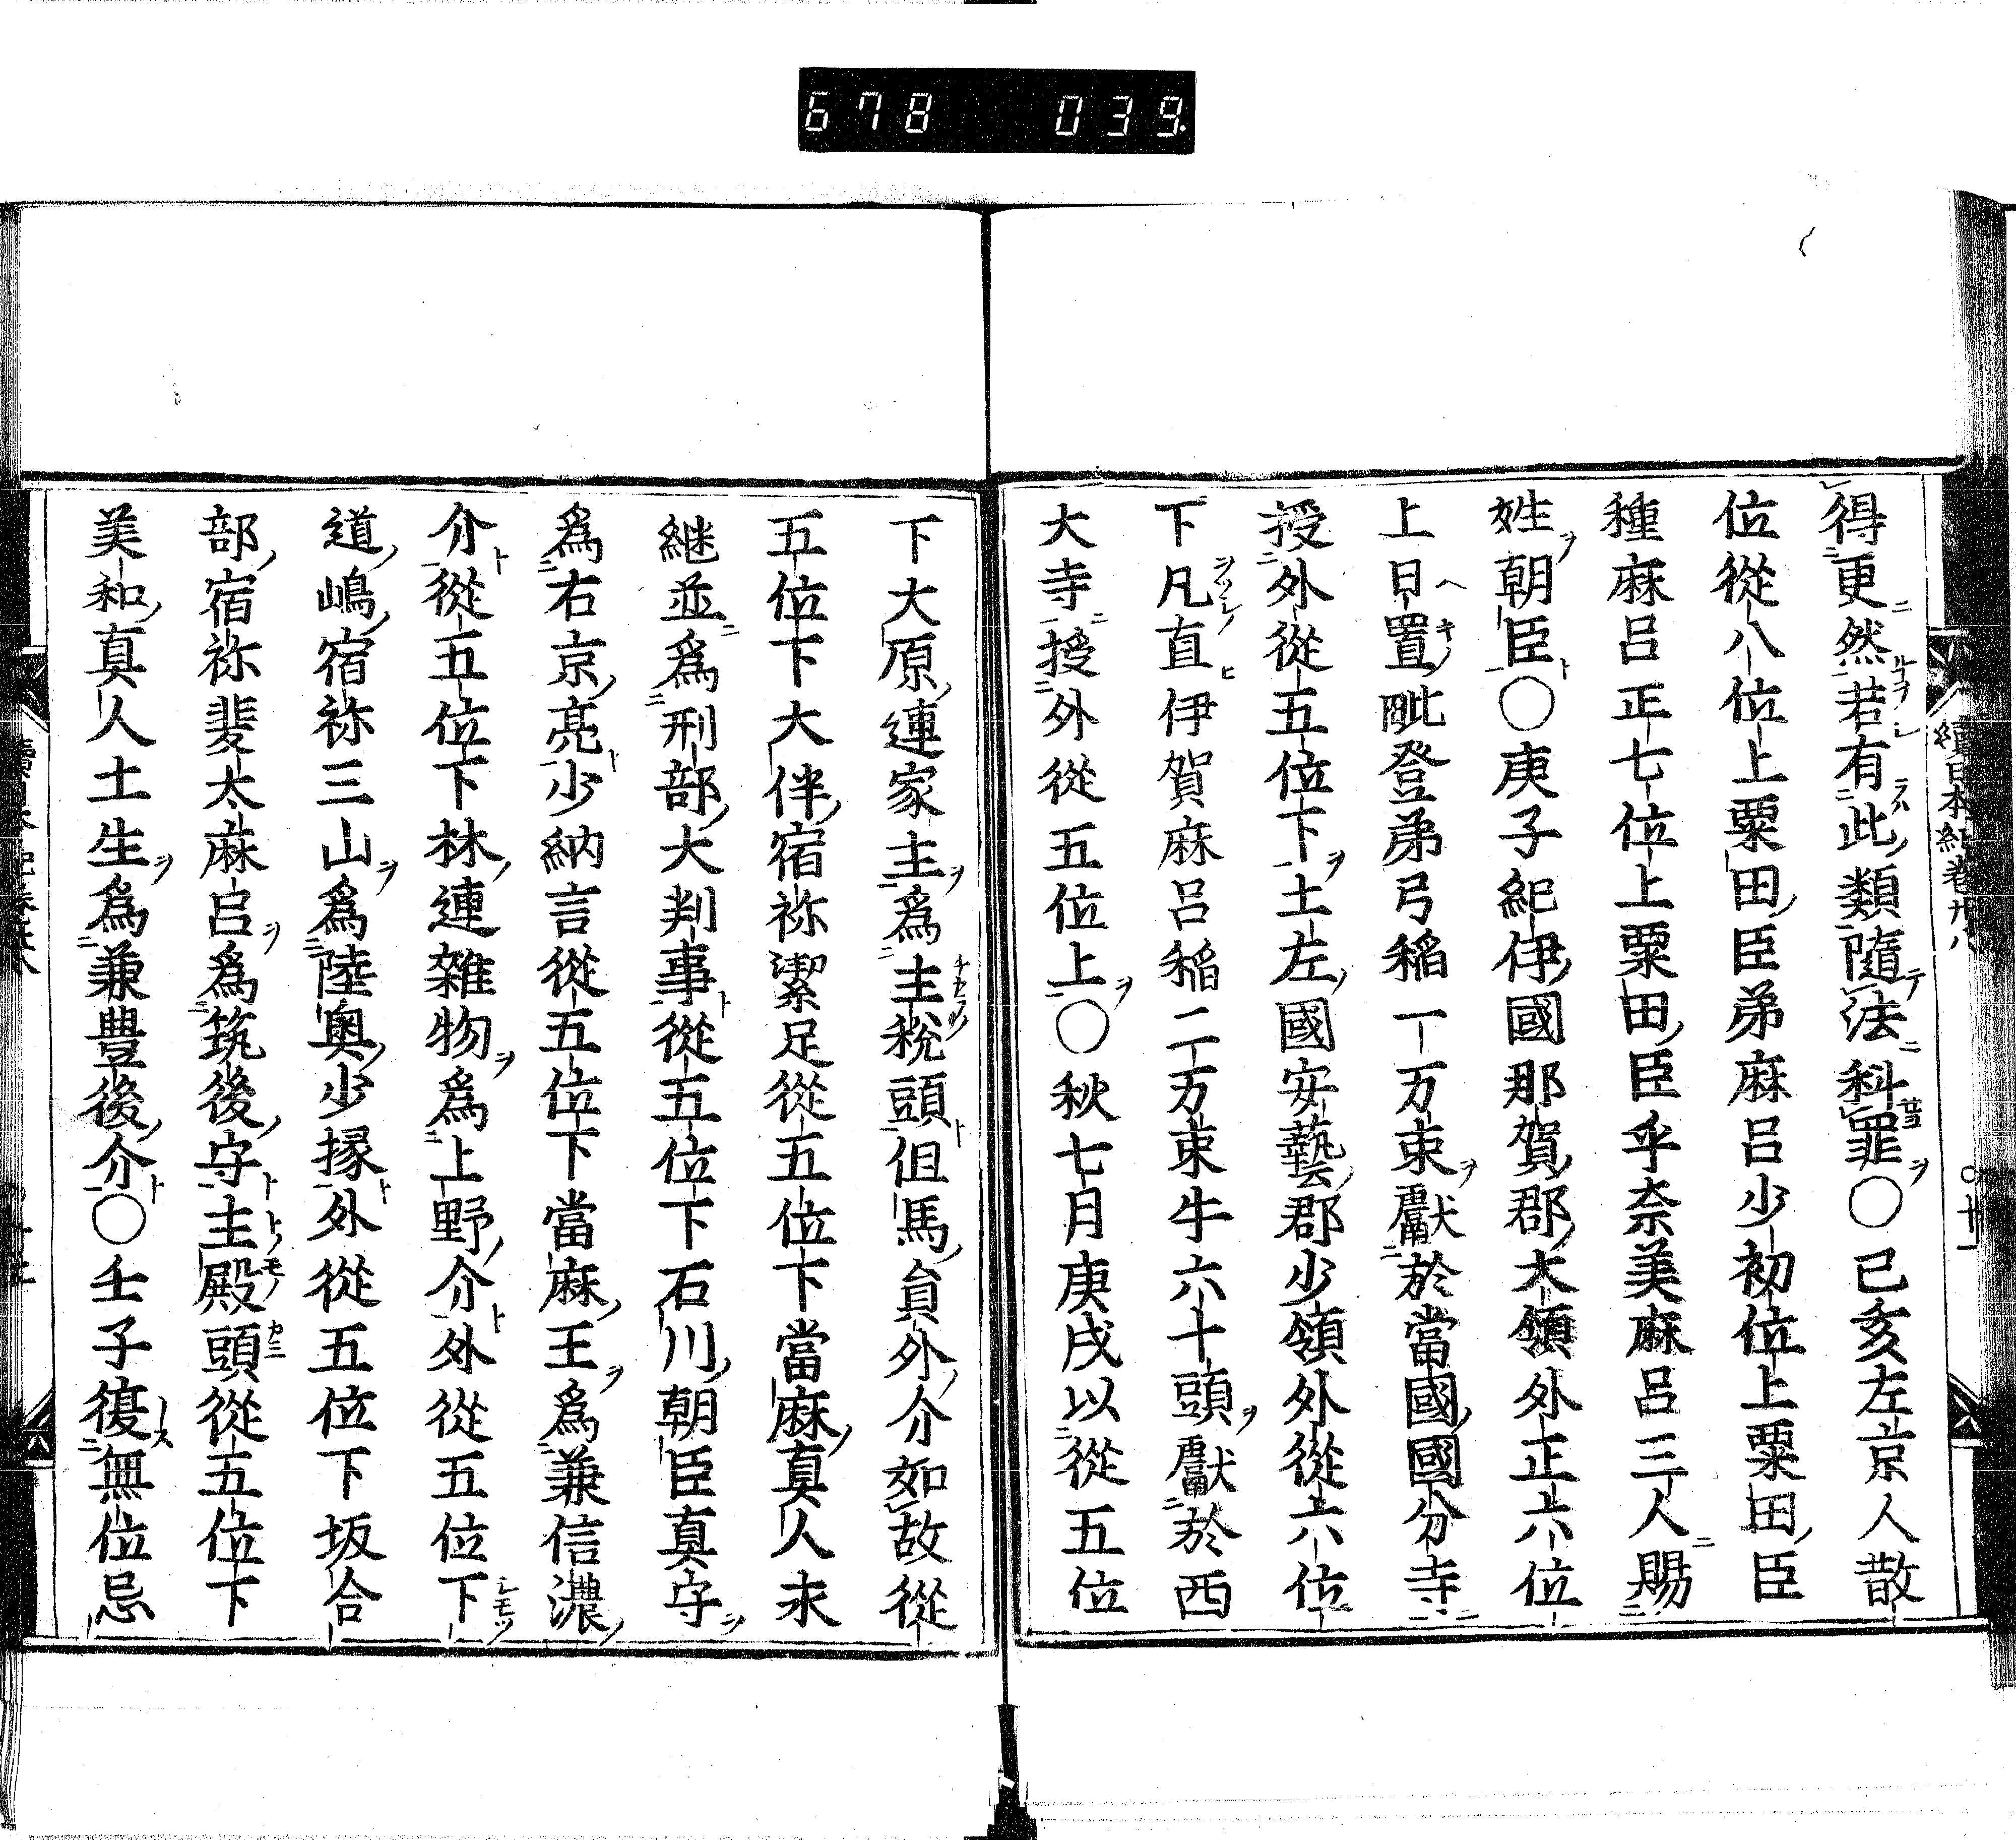 678 039
得更然若有此類隨法科罪〇己亥左京人散
位從八位上粟田臣弟麻呂少初位上粟田臣
種麻呂正七位上粟田臣乎奈美麻呂三人賜
姓朝臣〇庚子紀伊國那賀郡大領外正六位
上日置毗登弟弓稲一万束獻於當國國分寺
授外從五位下土左國安藝郡少領外從六位
下凡直伊賀麻呂稲二万束牛六十頭獻於西
大寺授外從五位上〇秋七月庚戌以從五位
下大原連家主爲主稅頭但馬員外介如故從
五位下大伴宿祢潔足從五位下當麻真人永
継並爲刑部大判事從五位下石川朝臣真守
爲右京亮少納言從五位下當麻王爲兼信濃
介從五位下林連雜物爲上野介外從五位下
道嶋宿祢三山爲陸奥少掾外從五位下坂合
部宿祢斐太麻呂爲筑後守主殿頭從五位下
美和真人土生爲兼豊後介〇壬子復無位忌